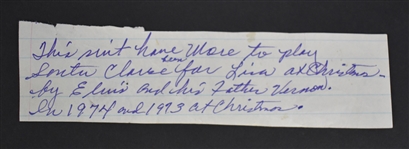 This suit have Wore to play
Santa Clause for Lisa at Christmas -
by Elvis and his Father Vernon.
In 1974 and 1973 at Christmas.